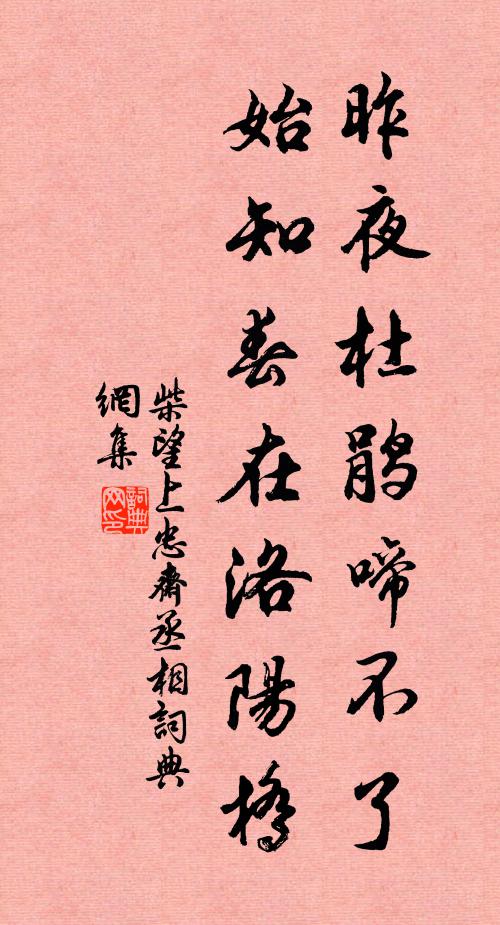 昨夜杜鵑啼不了
始知春在洛陽橋
柴望上忠齋丞相詞典
網集
詞典
网印